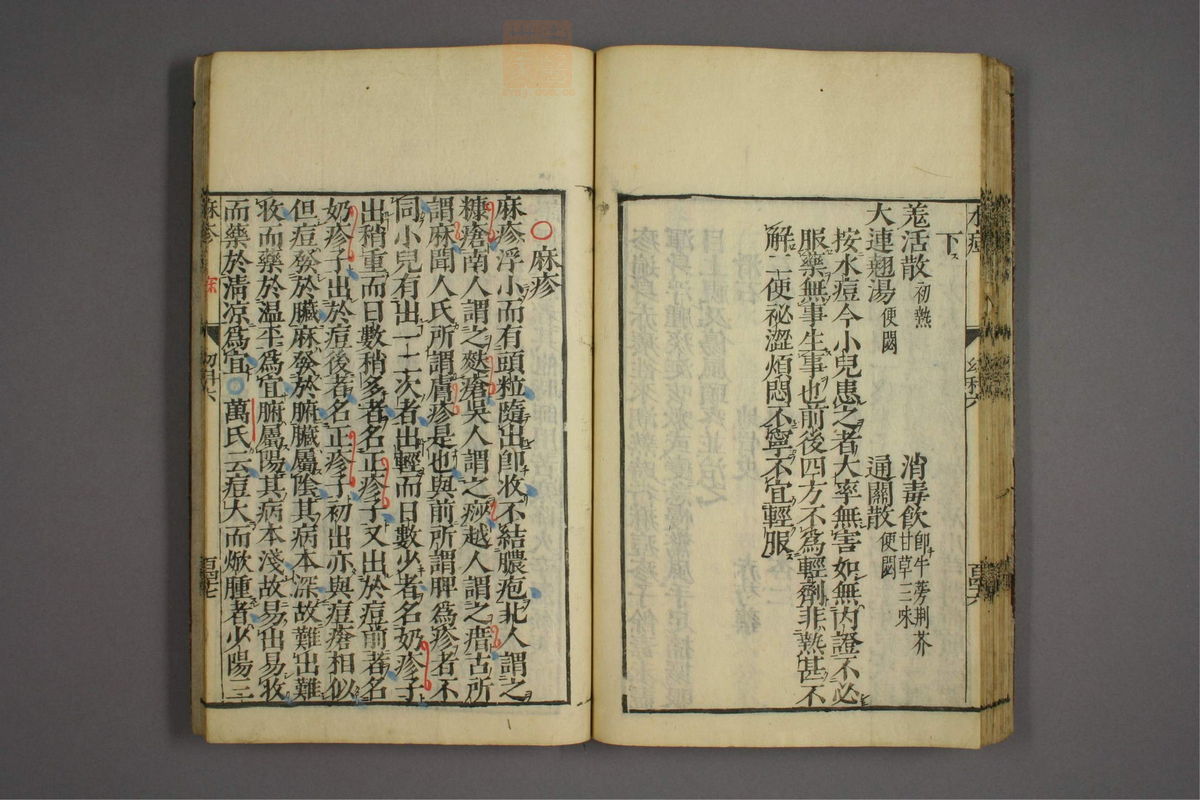 下
羗活散初熱 消毒飲即牛蒡荆芥甘草三味
大連翹湯便閟 通關散便閟
按水痘今小兒患之者大率無害如無內證不必
服藥無事生事也前後四方不爲輕劑非熱甚不
解二便祕澀煩悶不寧不宜輕服
○麻疹
麻疹浮小而有頭粒隨出即收不結膿疱北人謂之
糠瘡南人謂之麩瘡吳人謂之痧越人謂之瘖古所
謂麻聞人氏所謂膚疹是也與前所謂脾爲疹者不
同小兒有出一二次者出輕而日數少者名奶疹子
出稍重而日數稍多者名正疹子又出於痘前者名
奶疹子出於痘後者名正疹子初出亦與痘瘡相似
但痘發於臟麻發於腑臟屬陰其病本深故難出難
收而藥於温平爲宜腑屬陽其病本淺故易出易收
而藥於清凉爲宜○萬氏云痘大而焮腫者少陽三
麻疹 幼科六 百四十七